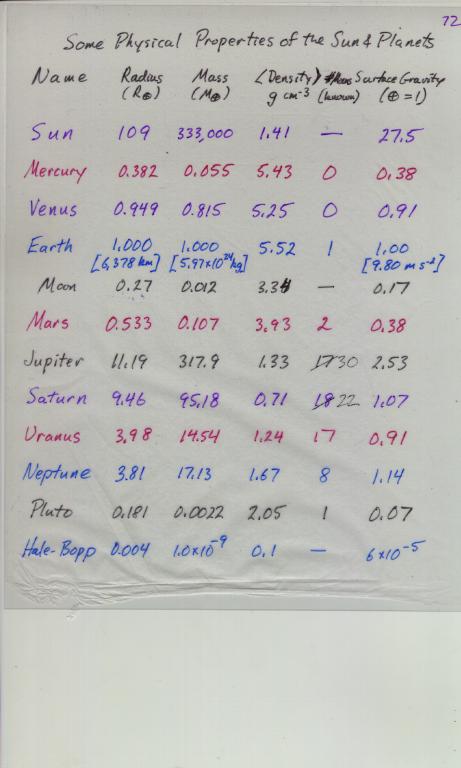 72
Some Physical Properties of the Sun & Planets
Name Radius Mass <Density> #Moons Surface Gravity
(R⊕) (M⊕) g cm⁻³ (known) (⊕=1)
Sun 109 333,000 1.41 — 27.5
Mercury 0.382 0.055 5.43 0 0.38
Venus 0.949 0.815 5.25 0 0.91
Earth 1.000 1.000 5.52 1 1.00
[6,378 km] [5.97×10²⁴ kg] [9.80 m s⁻²]
Moon 0.27 0.012 3.34 — 0.17
Mars 0.533 0.107 3.93 2 0.38
Jupiter 11.19 317.9 1.33 30 2.53
Saturn 9.46 95.18 0.71 18 22 1.07
Uranus 3.98 14.54 1.24 17 0.91
Neptune 3.81 17.13 1.67 8 1.14
Pluto 0.181 0.0022 2.05 1 0.07
Hale-Bopp 0.004 1.0×10⁻⁹ 0.1 — 6×10⁻⁵